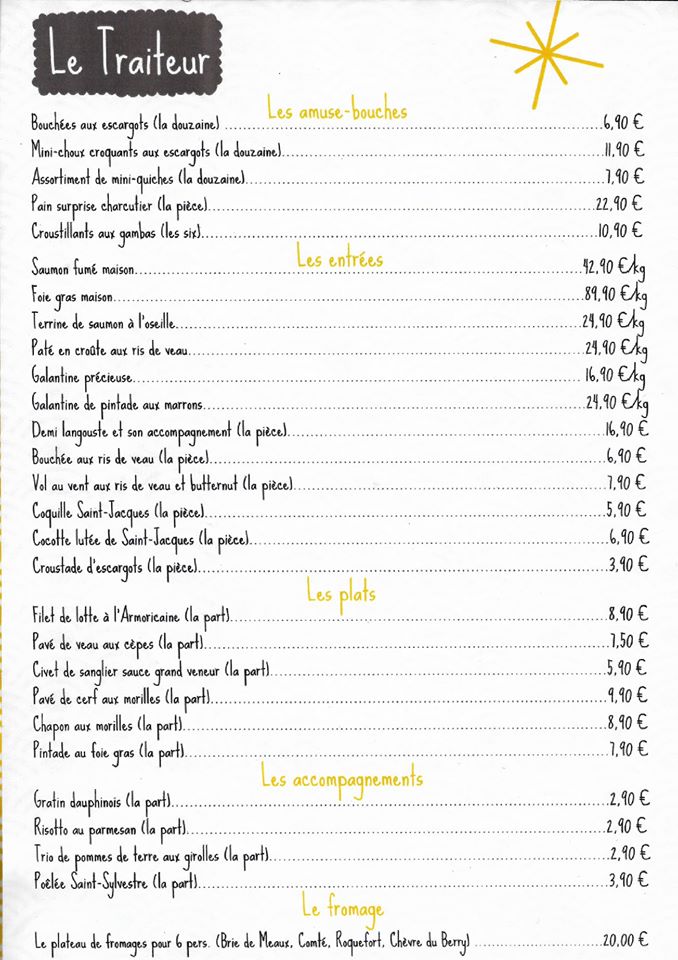 Le Traiteur
Les amuse-bouches
Bouchées aux escargots (la douzaine) 6,90 €
Mini-choux croquants aux escargots (la douzaine) 11,90 €
Assortiment de mini-quiches (la douzaine) 7,90 €
Pain surprise charcutier (la pièce) 22,90 €
Croustillants aux gambas (les six) 10,90 €
Les entrées
Saumon fumé maison 42,90 €/kg
Foie gras maison 89,90 €/kg
Terrine de saumon à l'oseille 24,90 €/kg
Paté en croûte aux ris de veau 24,90 €/kg
Galantine précieuse 16,90 €/kg
Galantine de pintade aux marrons 24,90 €/kg
Demi langouste et son accompagnement (la pièce) 16,90 €
Bouchée aux ris de veau (la pièce) 6,90 €
Vol au vent aux ris de veau et butternut (la pièce) 7,90 €
Coquille Saint-Jacques (la pièce) 5,90 €
Cocotte lutée de Saint-Jacques (la pièce) 6,90 €
Croustade d'escargots (la pièce) 3,90 €
Les plats
Filet de lotte à l'Armoricaine (la part) 8,90 €
Pavé de veau aux cèpes (la part) 7,50 €
Civet de sanglier sauce grand veneur (la part) 5,90 €
Pavé de cerf aux morilles (la part) 9,90 €
Chapon aux morilles (la part) 8,90 €
Pintade au foie gras (la part) 7,90 €
Les accompagnements
Gratin dauphinois (la part) 2,90 €
Risotto au parmesan (la part) 2,90 €
Trio de pommes de terre aux girolles (la part) 2,90 €
Poêlée Saint-Sylvestre (la part) 3,90 €
Le fromage
Le plateau de fromages pour 6 pers. (Brie de Meaux, Comté, Roquefort, Chèvre du Berry) 20,00 €